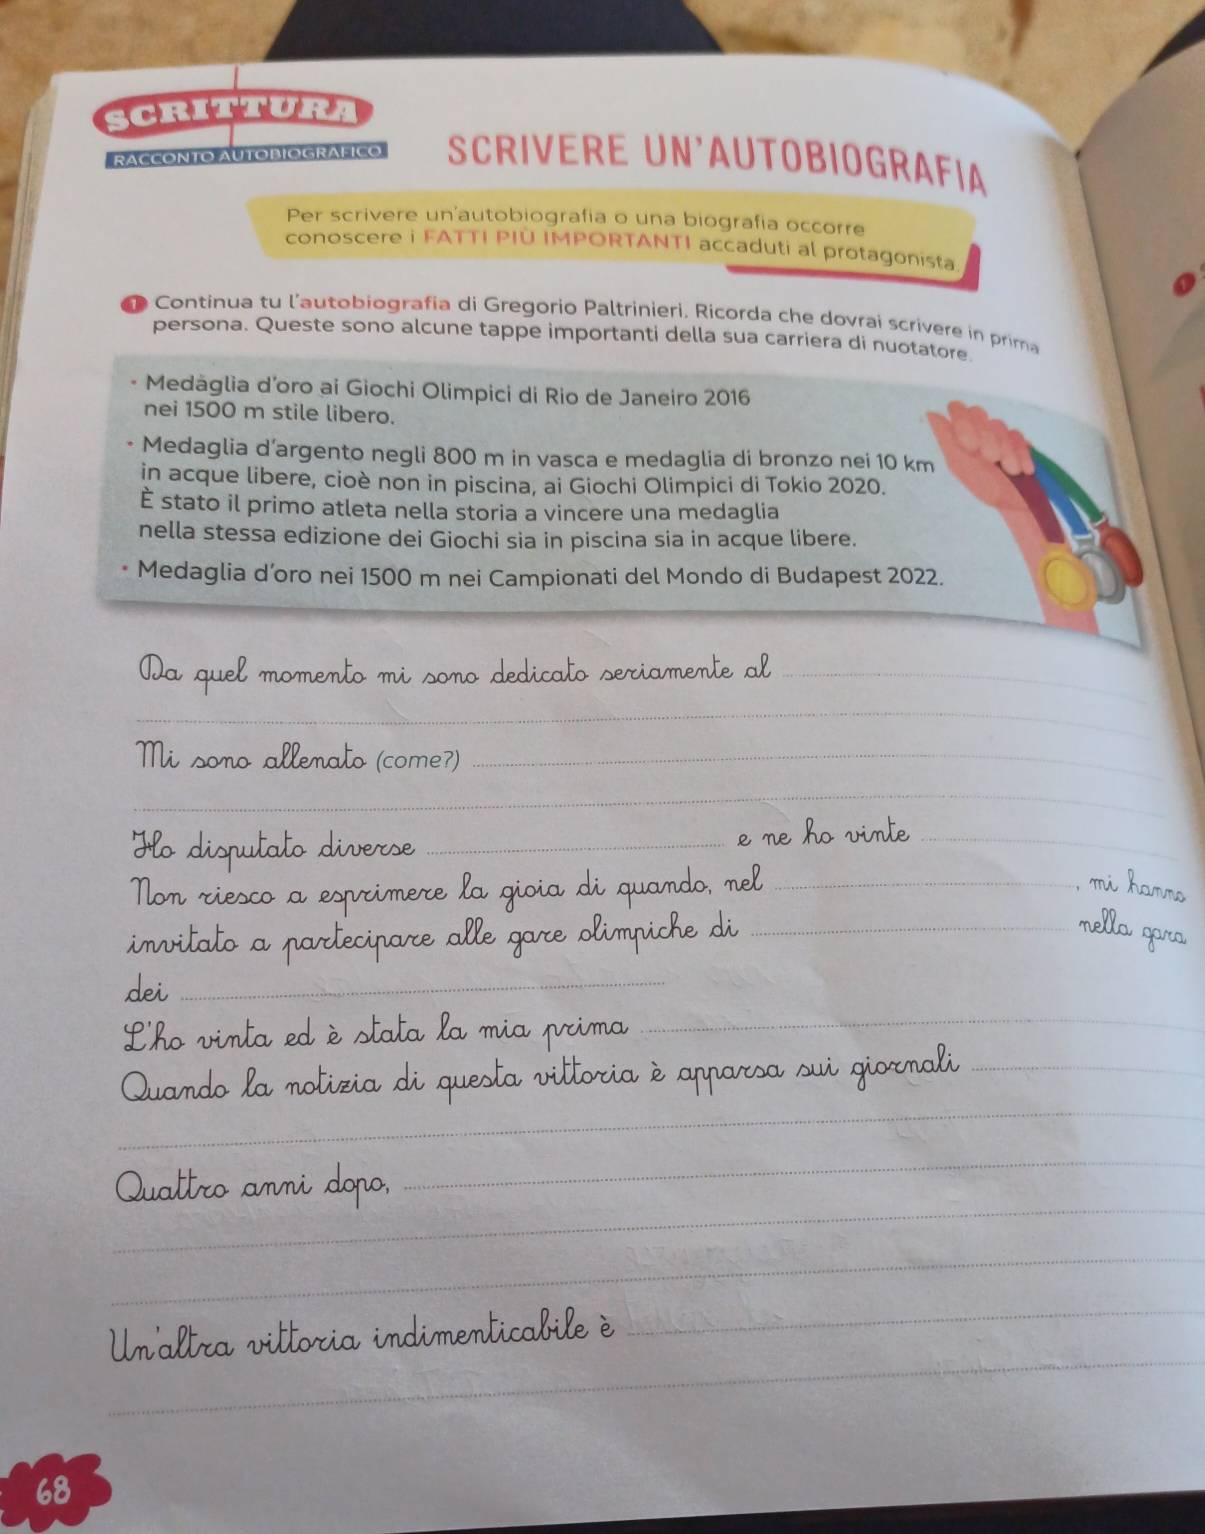 SCRITTURA
RACCONTO AUTOBIOGRAFICO
SCRIVERE UN'AUTOBIOGRAFIA
Per scrivere un'autobiografia o una biografia occorre
conoscere i FATTI PIÙ IMPORTANTI accaduti al protagonista.
1 Continua tu l'autobiografia di Gregorio Paltrinieri. Ricorda che dovrai scrivere in prima
persona. Queste sono alcune tappe importanti della sua carriera di nuotatore.
• Medaglia d'oro ai Giochi Olimpici di Rio de Janeiro 2016
nei 1500 m stile libero.
• Medaglia d'argento negli 800 m in vasca e medaglia di bronzo nei 10 km
in acque libere, cioè non in piscina, ai Giochi Olimpici di Tokio 2020.
È stato il primo atleta nella storia a vincere una medaglia
nella stessa edizione dei Giochi sia in piscina sia in acque libere.
• Medaglia d'oro nei 1500 m nei Campionati del Mondo di Budapest 2022.
Da quel momento mi sono dedicato seriamente al
Mi sono allenato (come?)
Ho disputato diverse e ne ho vinte
Non riesco a esprimere la gioia di quando, nel , mi hanno
invitato a partecipare alle gare olimpiche di nella gara
dei
L'ho vinta ed è stata la mia prima
Quando la notizia di questa vittoria è apparsa sui giornali
Quattro anni dopo,
Un'altra vittoria indimenticabile è
68
1